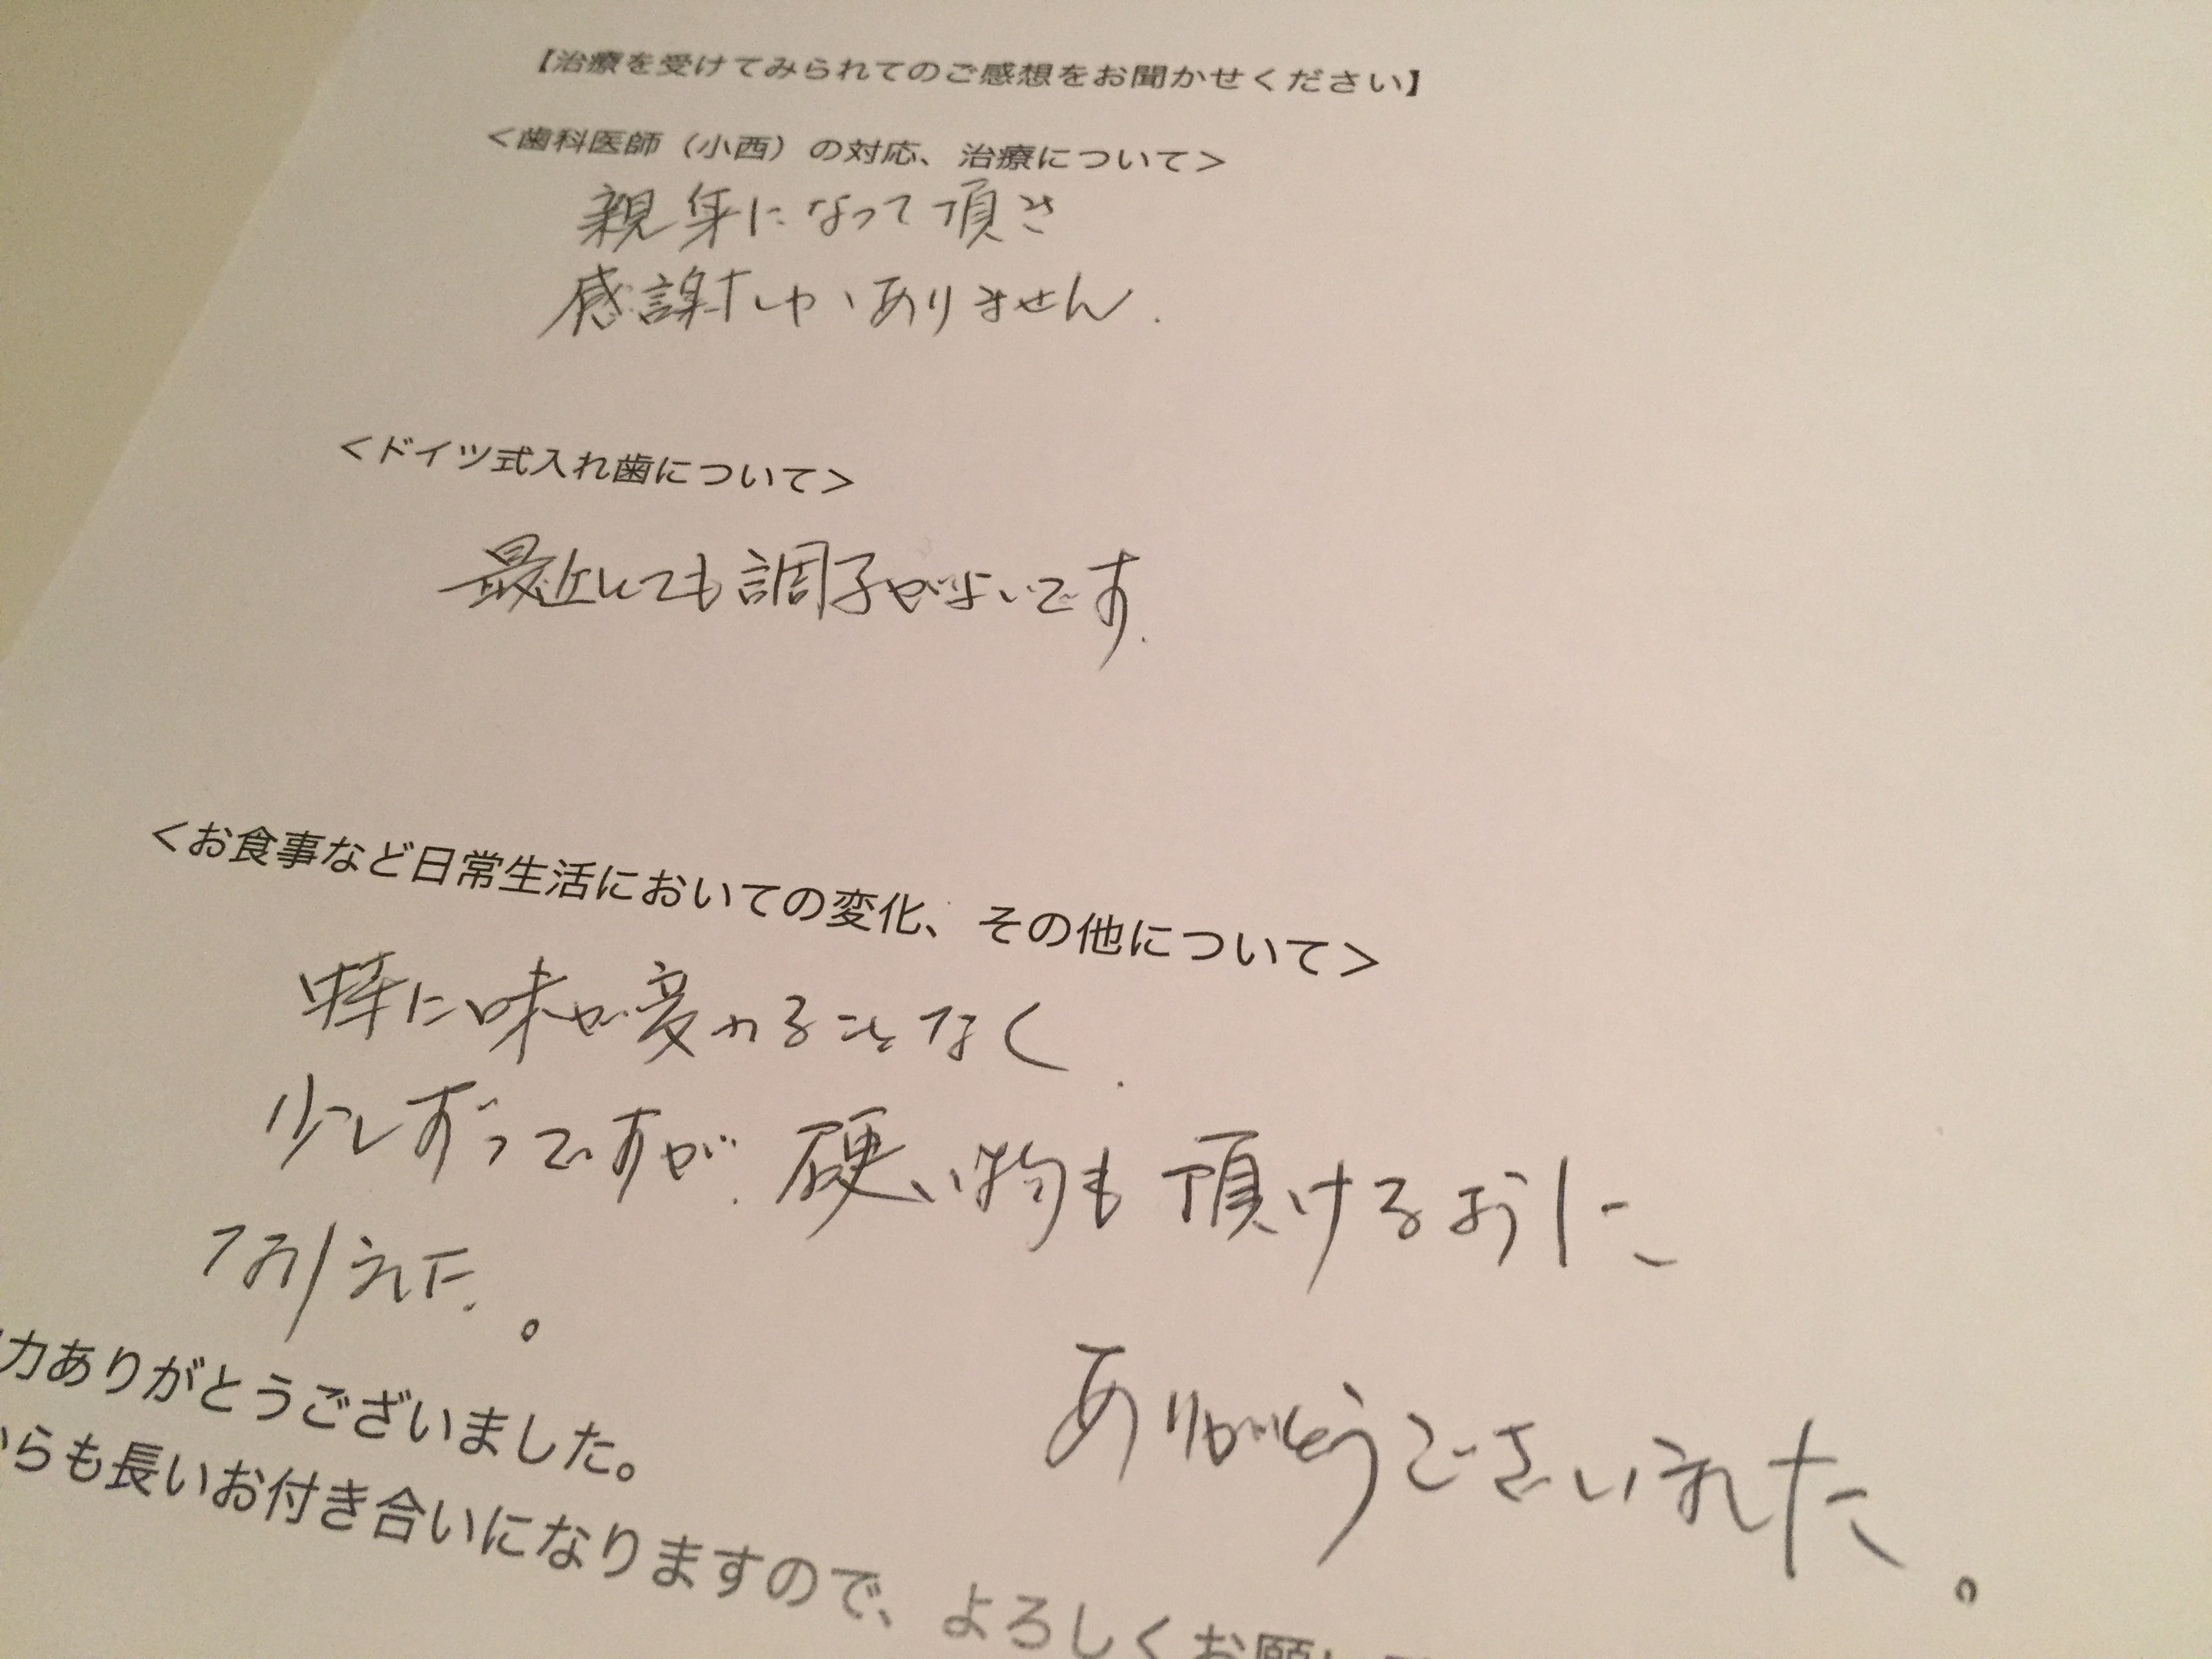 【治療を受けてみられてのご感想をお聞かせください】
＜歯科医師（小西）の対応、治療について＞
親身になって頂き
感謝しかありません.
＜ドイツ式入れ歯について＞
最近とても調子がよいです.
＜お食事など日常生活においての変化、その他について＞
特に味が変わることなく.
少しずつですが.硬い物も頂けるように
なりました。
力ありがとうございました。
ありがとうございました。
らも長いお付き合いになりますので、よろしくお願い